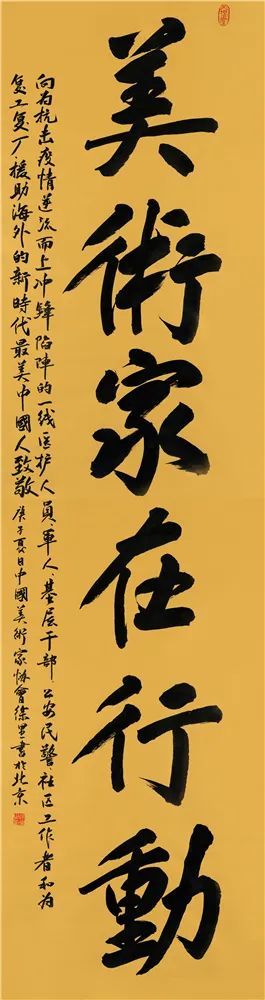 美術家在行動
向为抗击疫情逆流而上冲鋒陷陣的一线医护人員、軍人、基层干部、公安民警、社区工作者和为
复工复厂、援助海外的新時代最美中國人致敬 庚子夏日中國美術家協會徐里書於北京